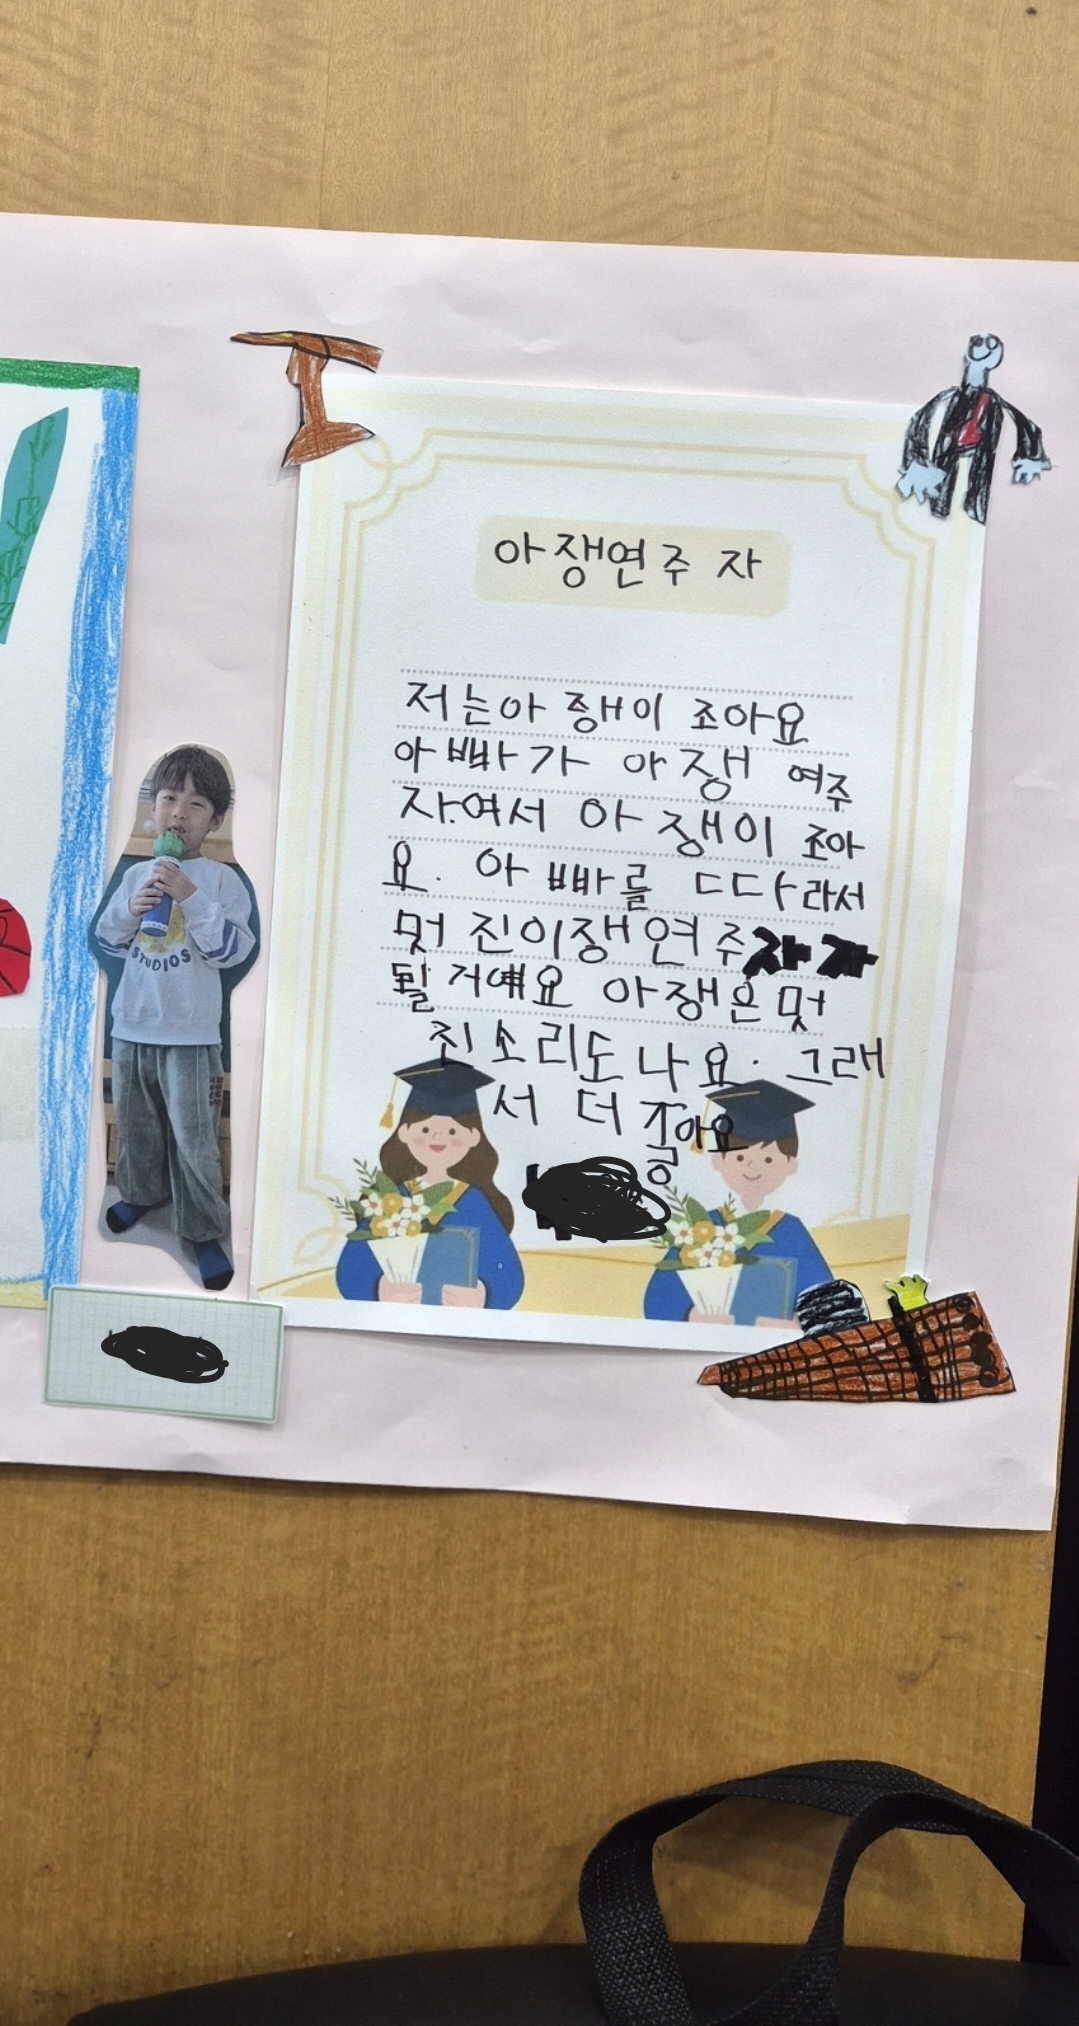 아쟁연주 자
저는아 쟁이 조아요
아빠가 아쟁 여주
자여서 아 쟁이 조아
요. 아 빠를 ㄸ다라서
멋 진이쟁연주
될 거얘요 아쟁은 멋
진 소리도 나요. 그래
서 더 졸아요
STUDIOS